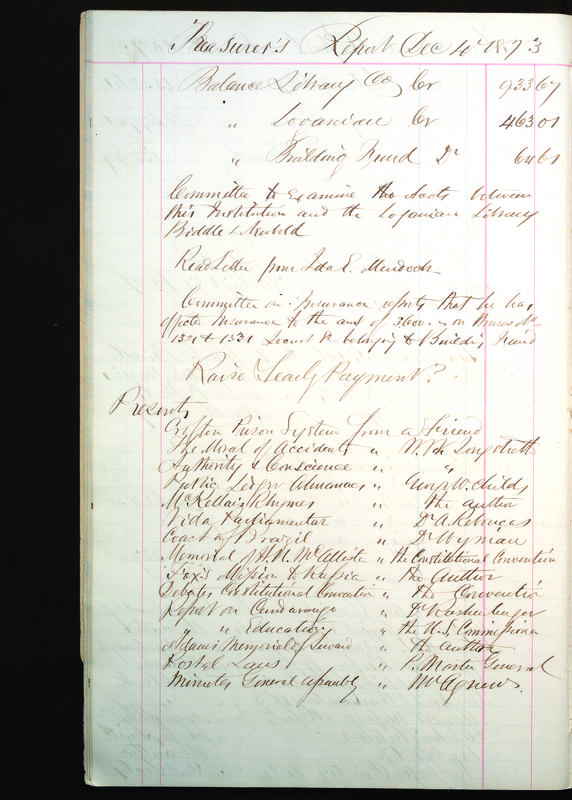 Treasurer's Report Dec 4th 1873
Balance Library Co Cr 933 67
" Loganian Cr 463 01
" Building Fund Dr 64 61
Committee to Examine the Accts between
this Institution and the Loganian Library
Biddle & Newbold
Read Letter from Ida E. Murdock
Committee on Insurance reports that he has
effected Insurance to the amt of 3600. on Houses No
1329 & 1331 Locust St belonging to Building Fund
Raise Yearly Payment?
Presents
Crofton Prison System from a friend
The Moral of Accidents " W. W. Longstreth
Authority & Conscience " "
Public Ledger Almanac " George W. Childs
McKellar's Rhymes " the author
Vida Parliamentar " Dr A. Rebouças
Coast of Brazil " Dr Wyman
Memorial of H. N. McAllister " the Constitutional Convention
Fox's Mission to Russia " the Author
Debates Constitutional Convention " the Convention
Report on Cundurango " Dr Ruschenberger
" " Education " the U.S. Commissioner
Adams Memorial of Seward " the author
Postal Laws " P. Master General
Minutes General Assembly " Mr Agnew.